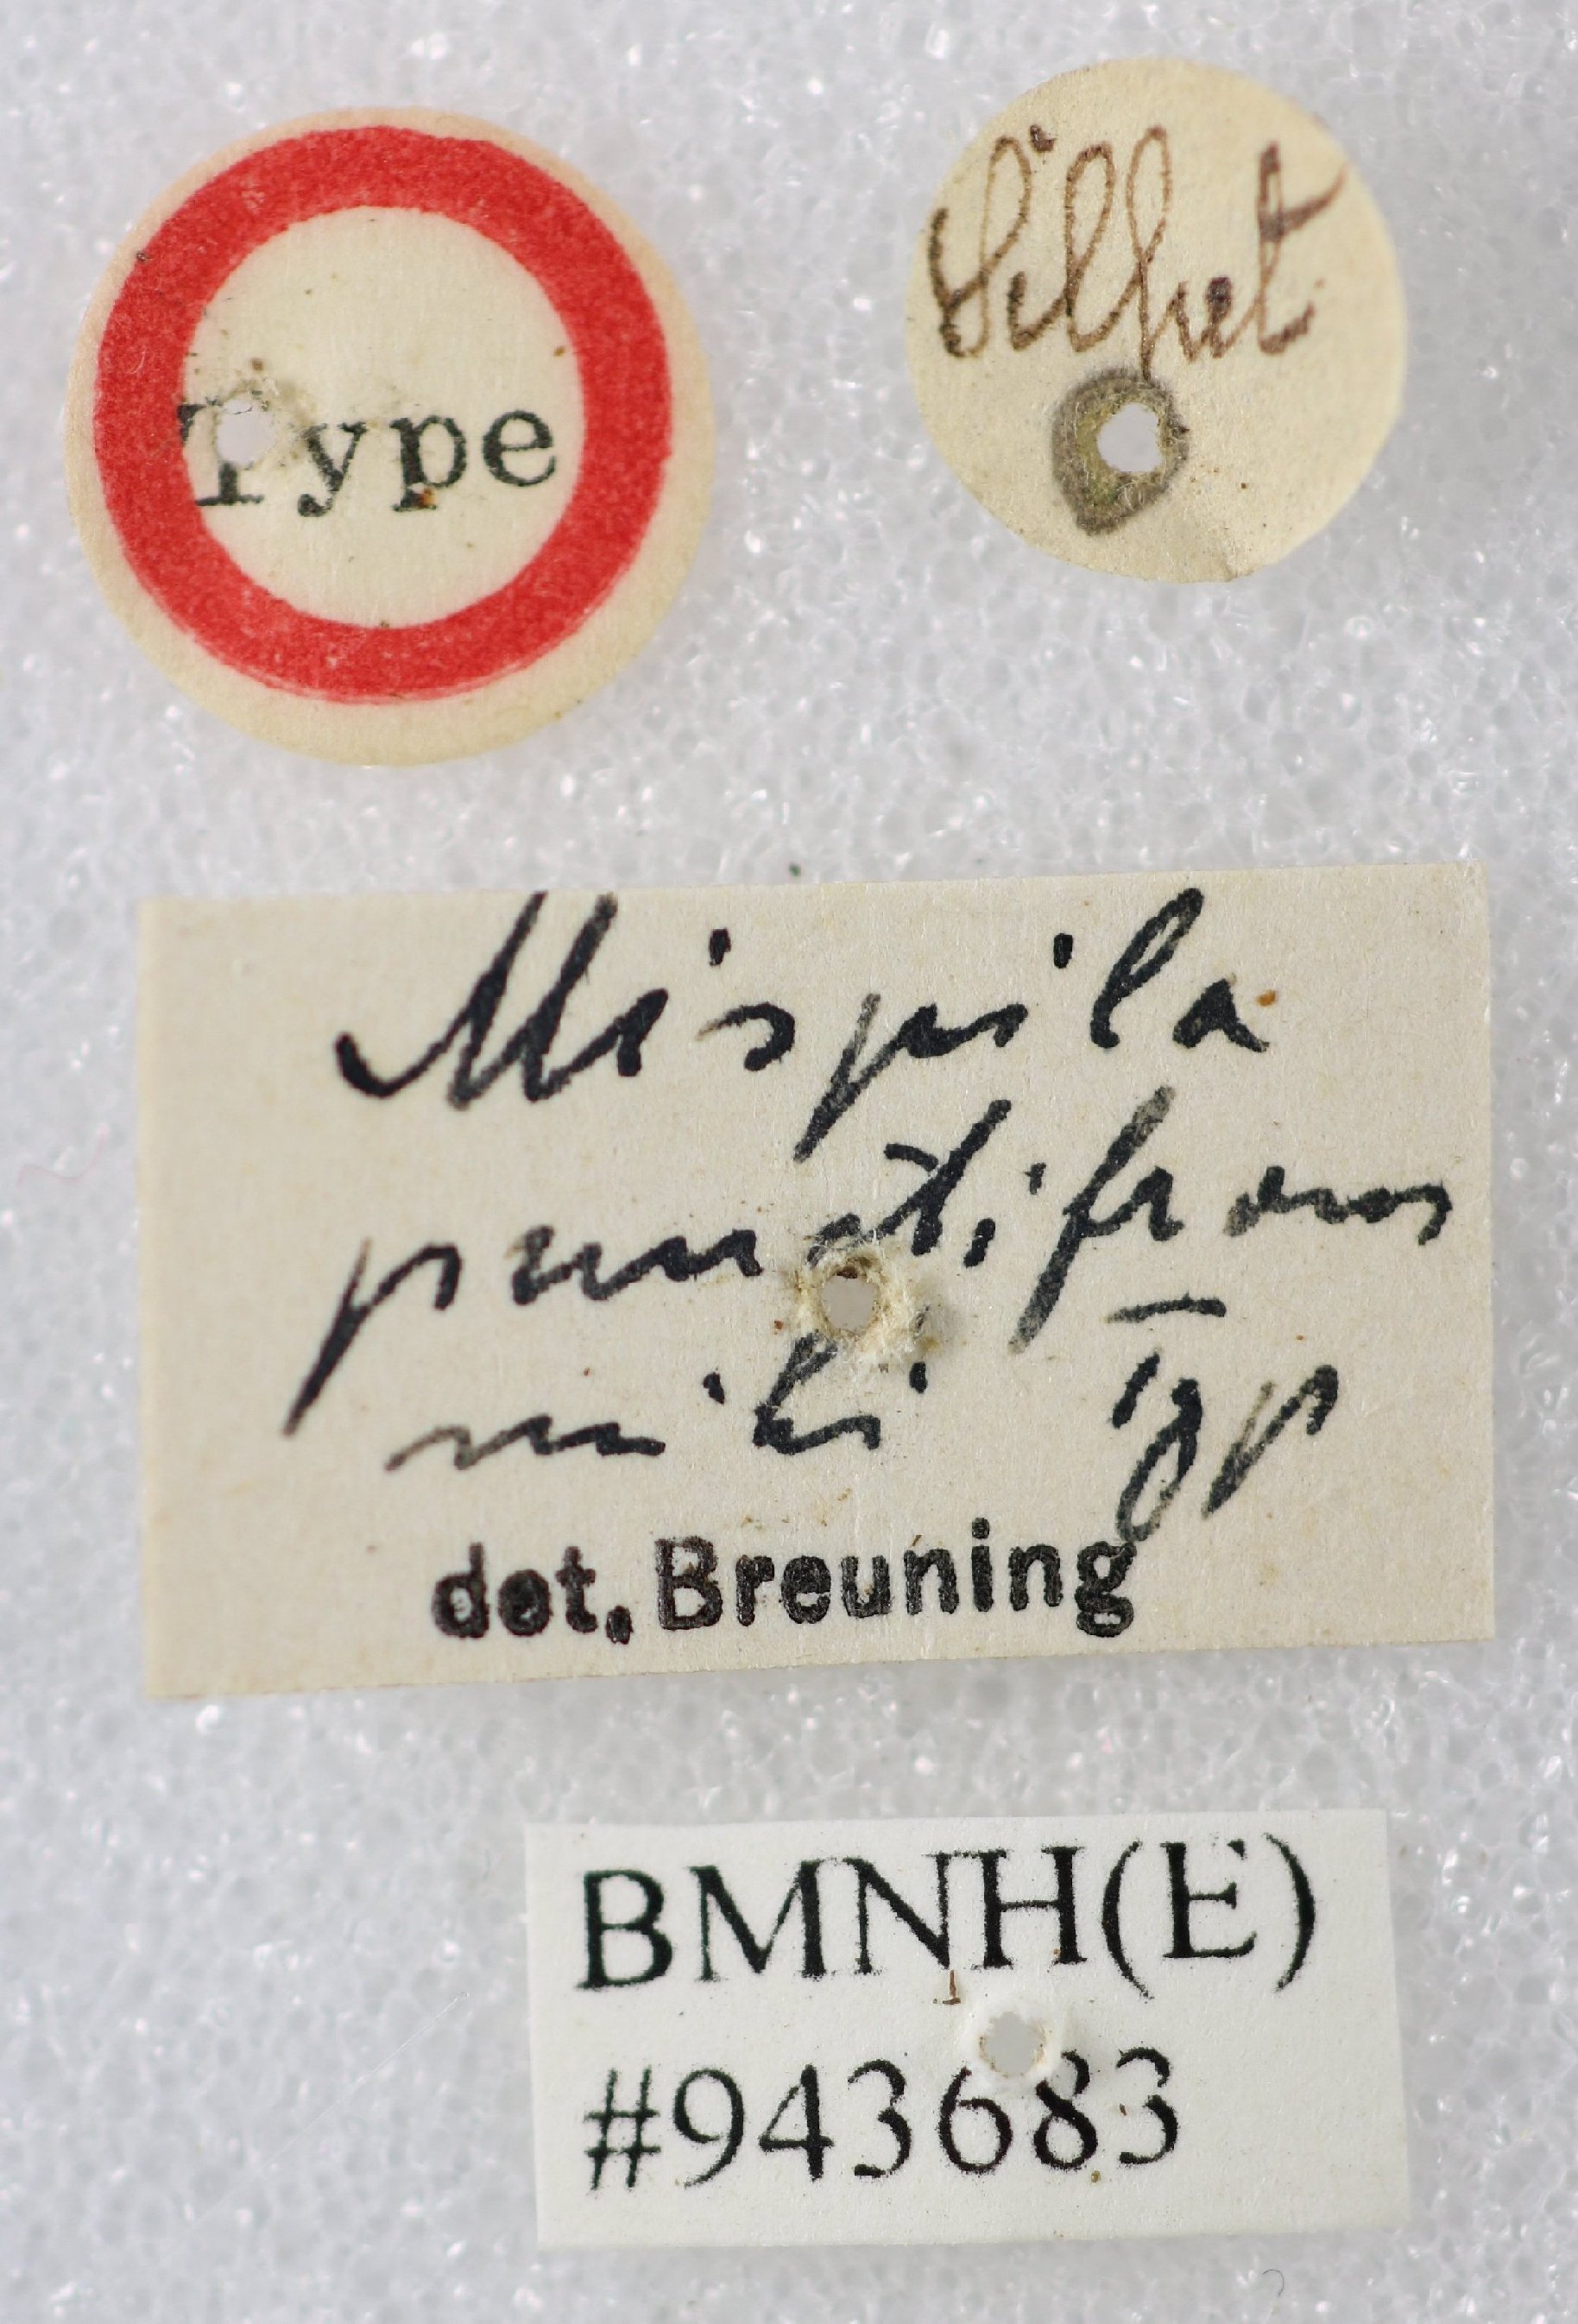 Type
Silhet
Mispila
punctifrons
mihi Typ
det. Breuning
BMNH(E)
#943683